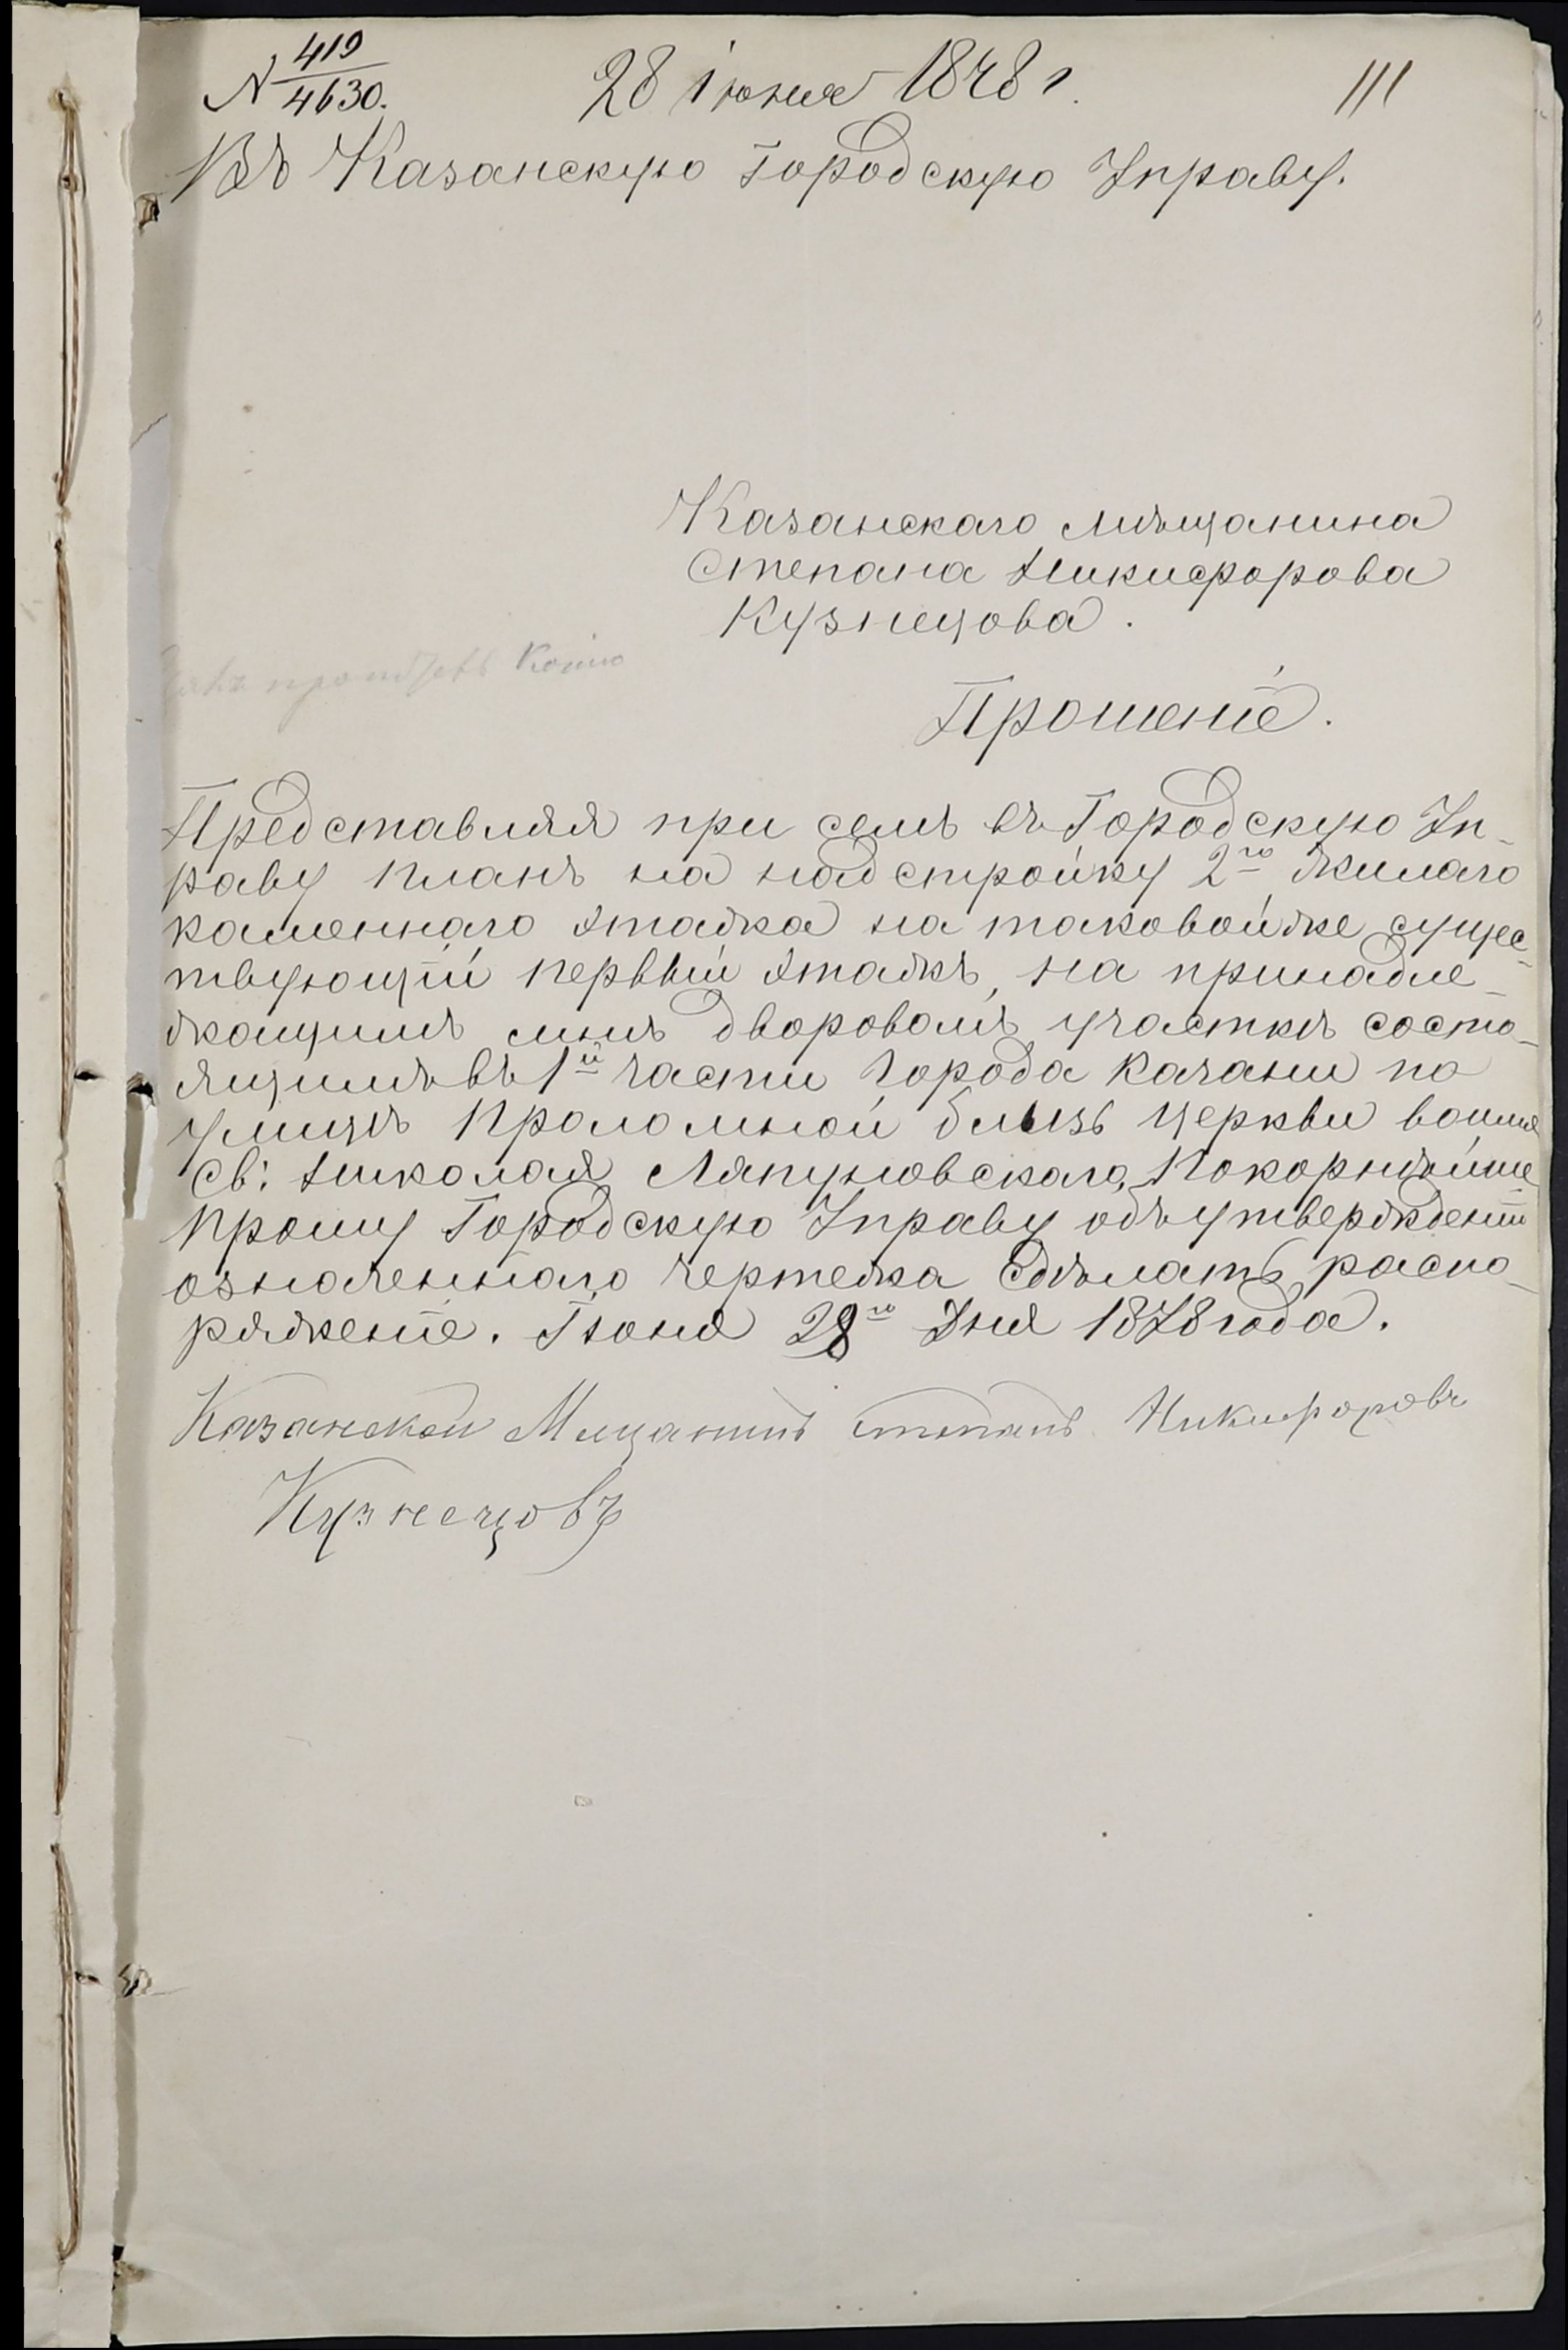 N 419/4630. 28 іюня 1878 г. 111
Въ Казанскую Городскую Управу.
Казанскаго мѣщанина
Степана Никифорова
Кузнецова.
Копію
Прошеніе.
Представляя при семъ въ Городскую Уп-
раву планъ на надстройку 2го жилаго
каменнаго этажа на таковойже сущес-
твующій первый этажъ, на принадле-
жащимъ мнѣ дворовомъ участкѣ состо-
ящимъ въ 1й части города Казани по
улицѣ Проломной близь церкви
Св: Николая Ляпуновскаго, Покорнѣйше
прошу Городскую Управу объ утвержденіи
означеннаго чертежа сдѣлать распо-
ряженіе. Іюня 28го дня 1878 года.
Казанской Мещанинъ степанъ Никифоровъ
Кузнецовъ